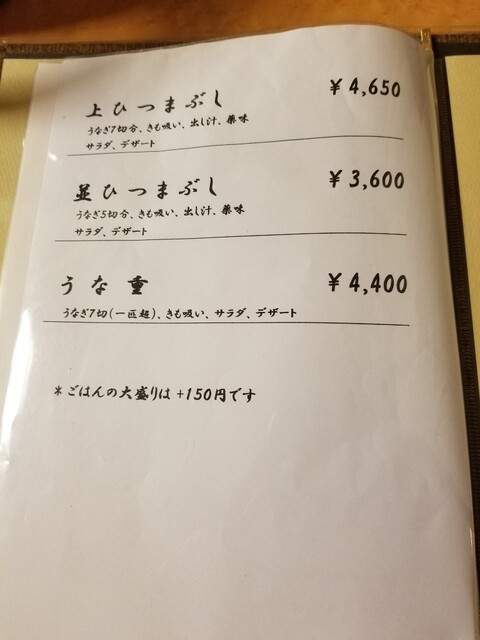 上ひつまぶし ¥4,650
うなぎ7切分、きも吸い、出し汁、薬味
サラダ、デザート
並ひつまぶし ¥3,600
うなぎ5切分、きも吸い、出し汁、薬味
サラダ、デザート
うな重 ¥4,400
うなぎ7切(一匹超)、きも吸い、サラダ、デザート
*ごはんの大盛りは+150円です